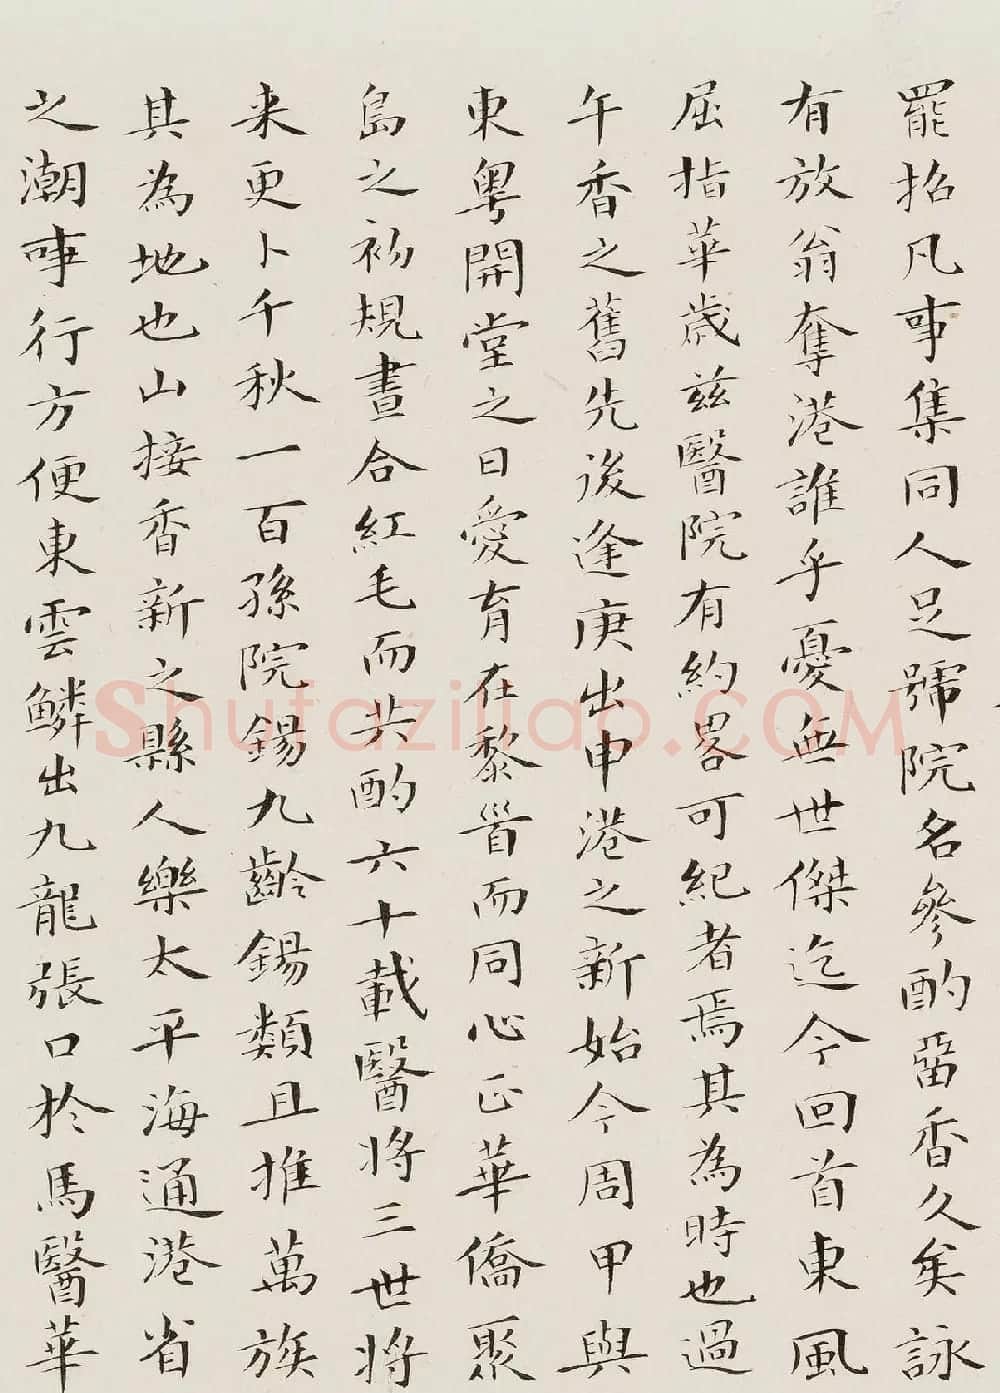 罷招凡事集同人足號院名參酌留香久矣詠
有放翁奪港誰乎憂無世傑迄今回首東風
屈指華歲茲醫院有約畧可紀者焉其為時也過
午香之舊先後逢庚出申港之新始今周甲與
東粵開堂之日愛育在黎首而同心正華僑聚
島之初規畫合紅毛而共酌六十載醫將三世將
来更卜千秋一百孫院錫九齡錫類且推萬族
其為地也山接香新之縣人樂太平海通港省
之潮事行方便東雲鱗出九龍張口於馬醫華
Shufaziliao.COM